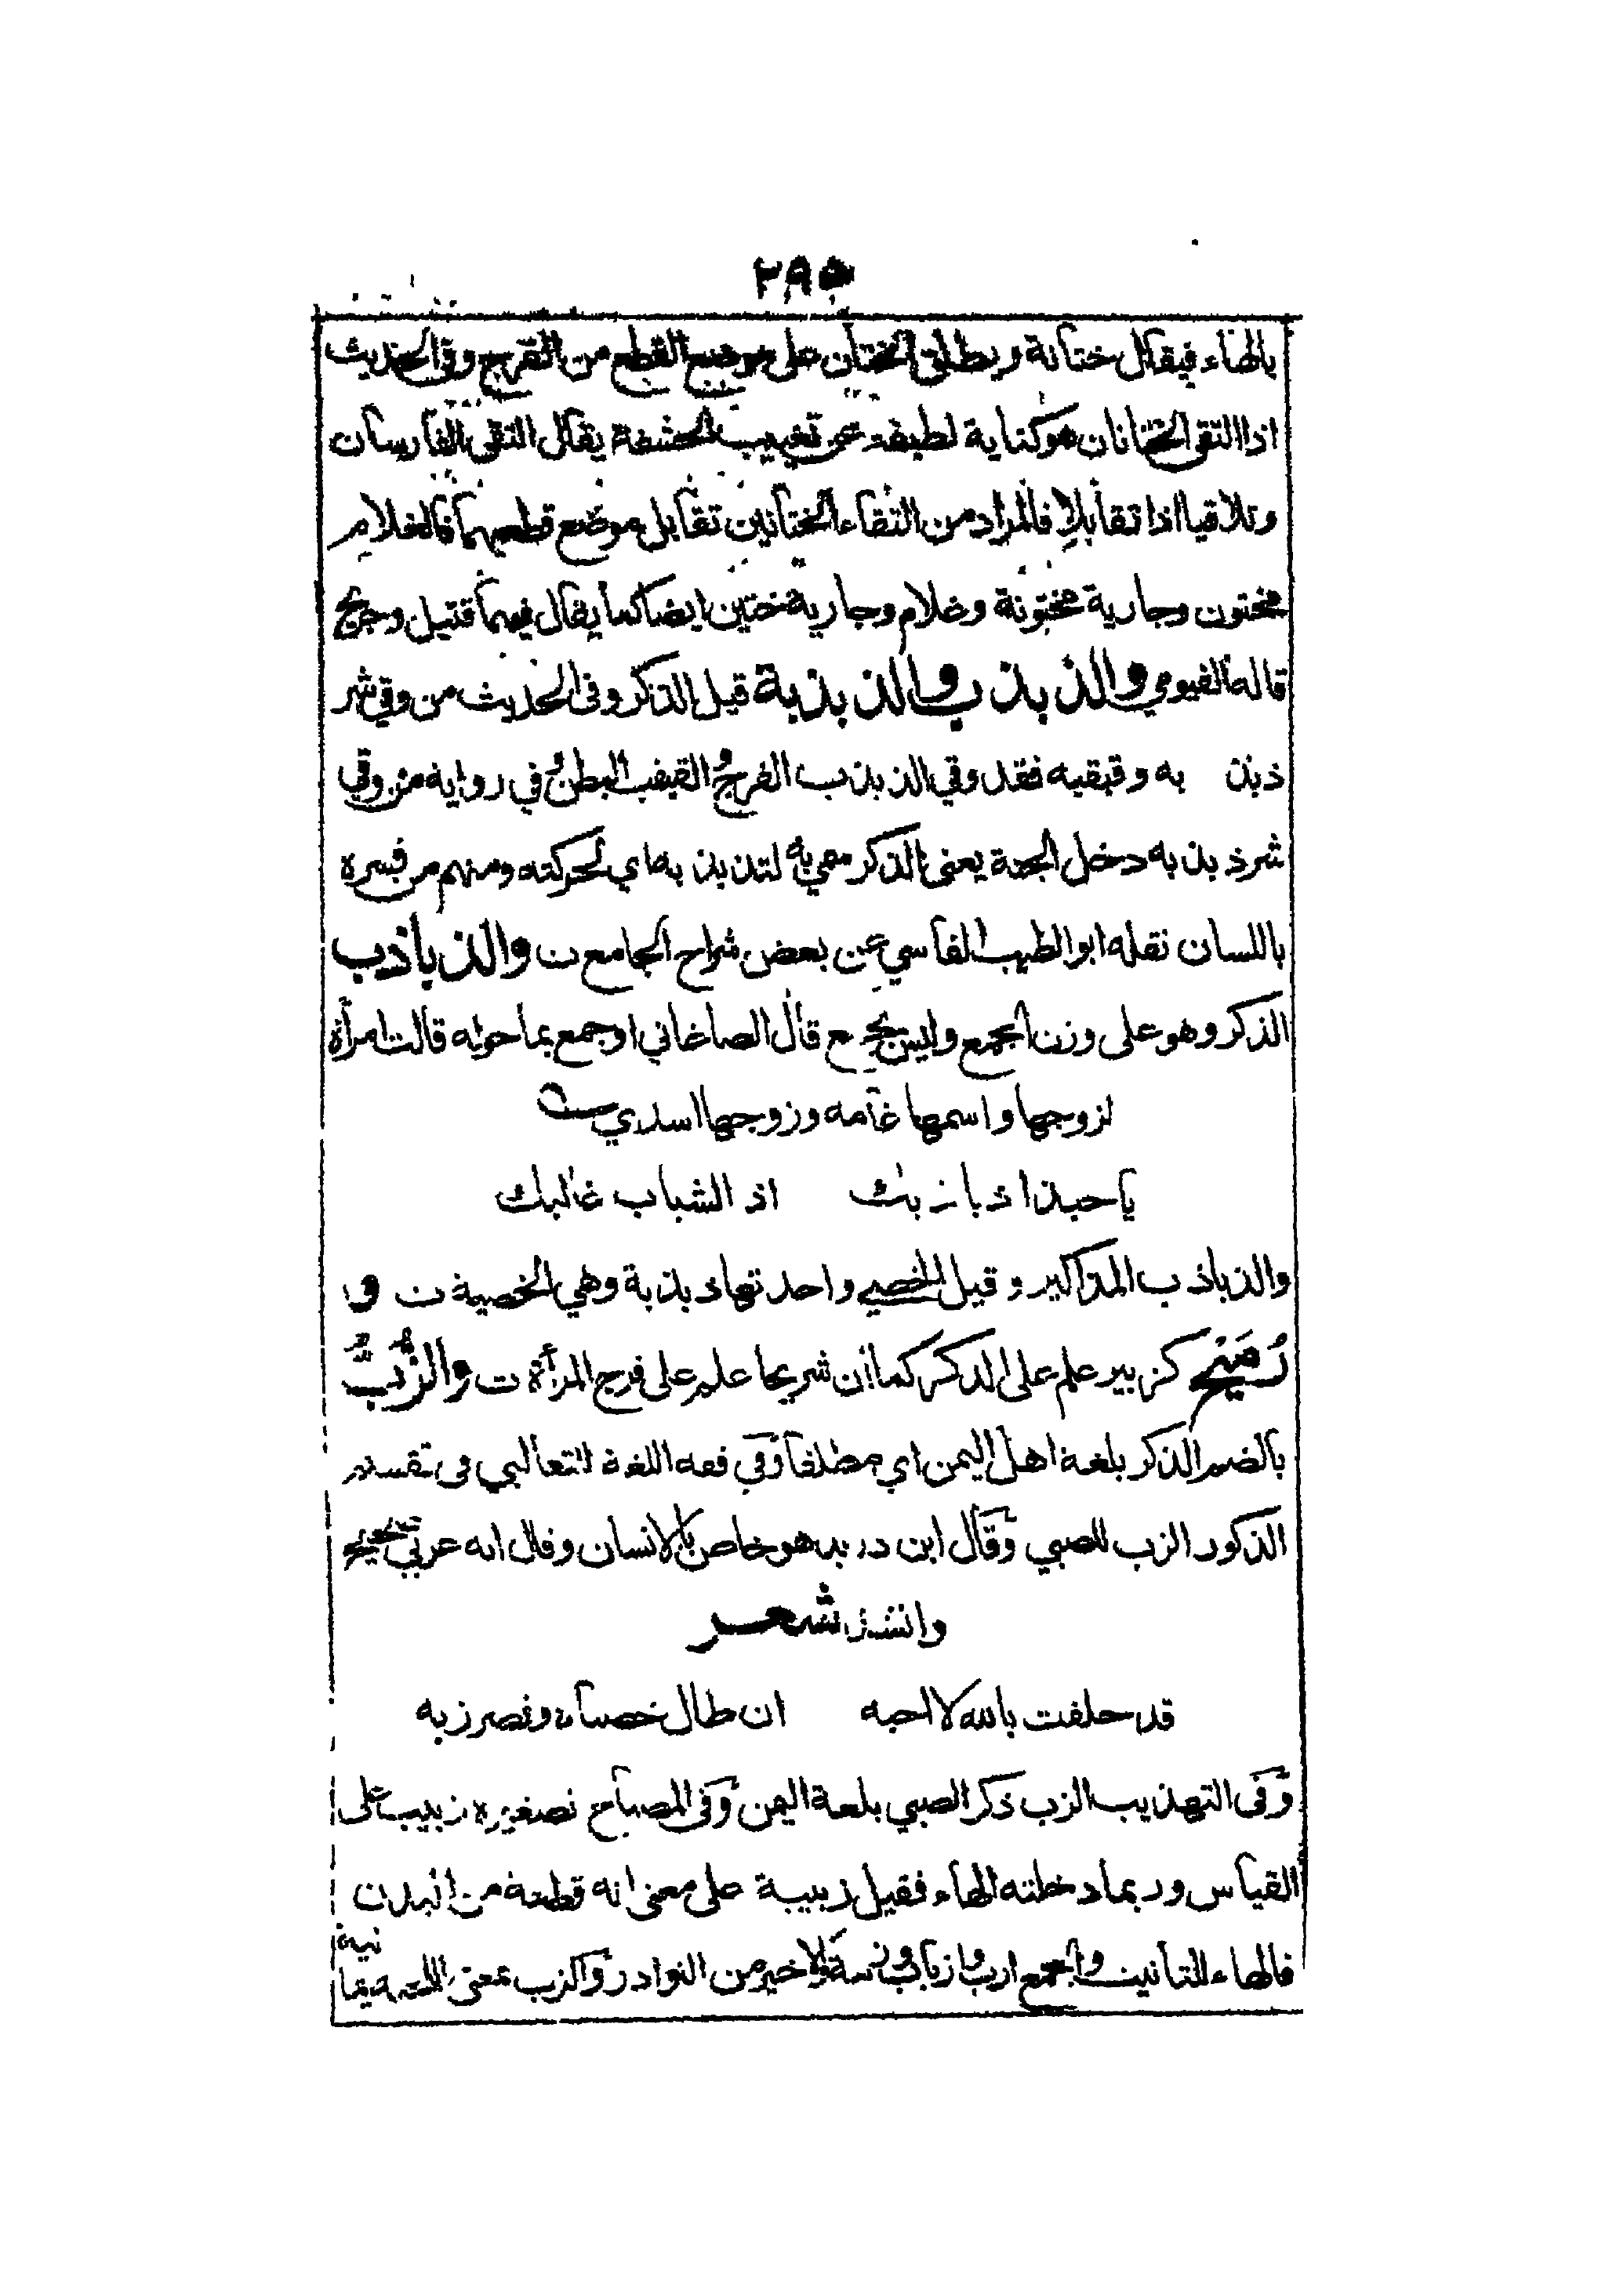 ٢٩٥
بالهاء فيقال ختانة ويطلق الختان على موضع القطع من الفرج وفي الحديث
اذا التقى الختانان هو كناية لطيفة عن تغييب الحشفة يقال التقى الفارسان
وتلاقيا اذا تقابلا فالمراد من التقاء الختانين تقابل موضع قطعهما فالغلام
مختون وجارية مختونة وغلام وجارية ختين ايضا كما يقال فيهما قتيل وجريح
قاله الفيومي والذبذب والذبذبة قيل الذكر وفى الحديث من وقي شر
ذبذ به وقبقبه فقد وقي الذبذب الفرج و القبقب البطن و في رواية من وقي
شر ذبذ به دخل الجنة يعنى الذكر سمي به لتذبذ به اي لحركته ومنهم من فسره
باللسان نقله ابو الطيب الفاسي عن بعض شراح الجامع ت والذباذب
الذكر وهو على وزن الجمع وليس بجمع قال الصاغاني او جمع بما حوله قالت امرأة
لزوجها واسمها غامه وزوجها اسدي
يا حبذا ذباذبك اذ الشباب غالبك
والذباذب المذاكير وقيل الخصي واحدتها ذبذبة وهي الخصية ت و
رُمَيْح كزبير علم على الذكر كما ان شريحا علم على فرج المرأة ت والزُّبُّ
بالضم الذكر بلغة اهل اليمن اي مطلقا وفي فقه اللغة للثعالبي فى تقسيم
الذكور الزب للصبي وقال ابن دريد هو خاص بالانسان وقال انه عربي صحيح
وانشد شعر
قد حلفت بالله لا احبه ان طال خصياه وقصر زبه
وفى التهذيب الزب ذكر الصبي بلغة اليمن وفى المصباح تصغيره زبيب على
القياس وربما دخلته الهاء فقيل زبيبة على معنى انه قطعة من البدن
فالهاء للتأنيث و الجمع ازب و ازباب و زببة والاخير من النوادر والزب بمعنى اللحية يما
نية